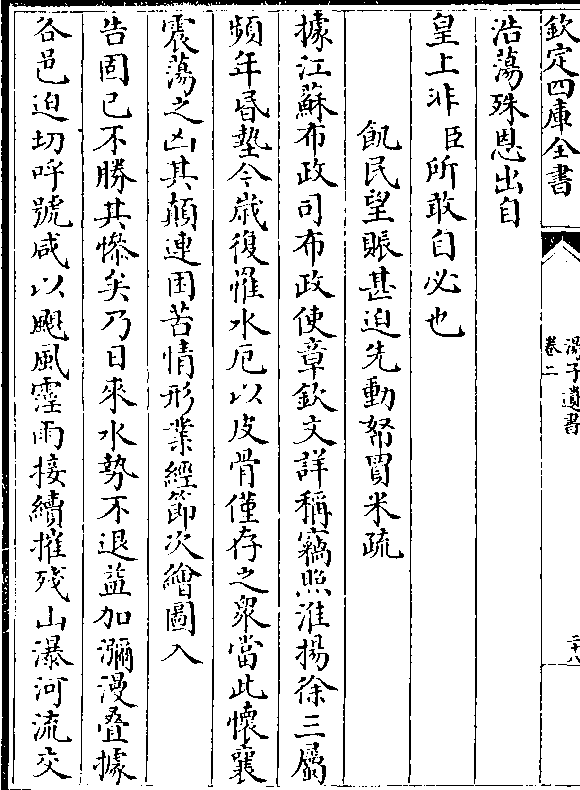 欽定四庫全書
湯子遺書
卷二
二十八
浩蕩殊恩出自
皇上非臣所敢自必也
飢民望賑甚迫先動帑買米疏
據江蘇布政司布政使章欽文詳稱竊照淮揚徐三屬
頻年昏墊今歳復懼水厄以皮骨僅存之衆當此懷襄
震蕩之凶其顛連困苦情形業經節次繪圖入
告固已不勝其慘矣乃日來水勢不退益加瀰漫疊據
各邑迫切呼號咸以颶風霪雨接續摧殘山瀑河流交